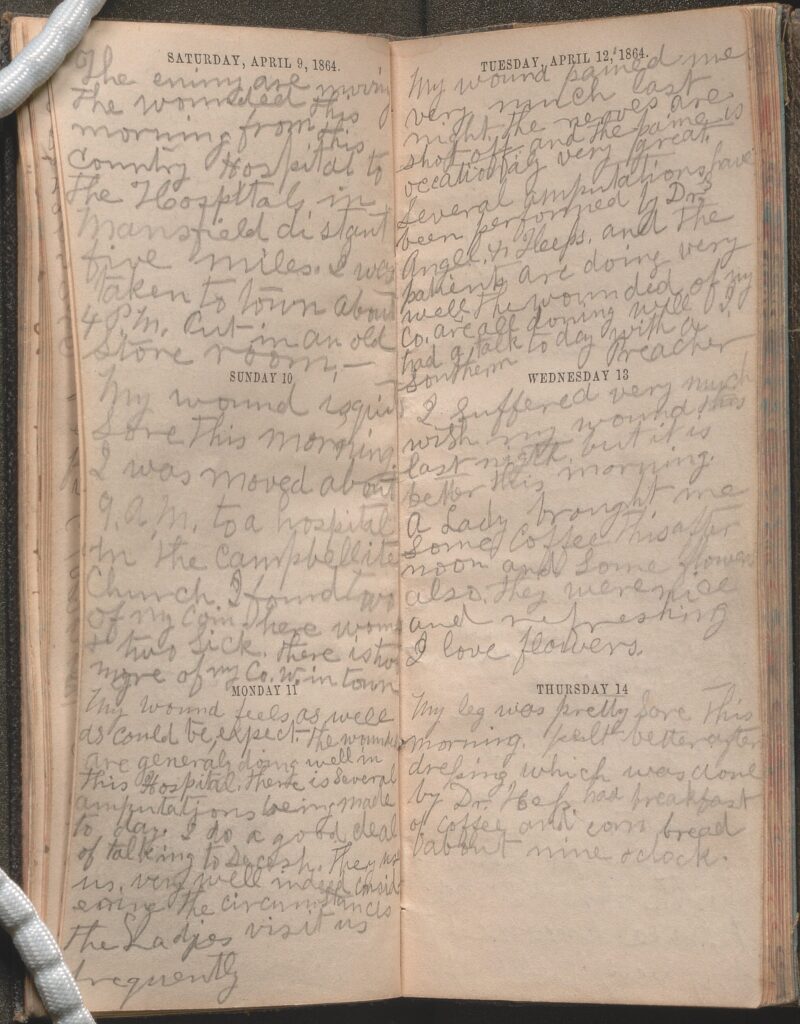 SATURDAY, APRIL 9, 1864.
The enimy are moving
the wounded this
morning from this
Country Hospital to
the Hospitals in
Mansfield distant
five miles. I was
taken to town about
4 P.M. Put in an old
store room,—
SUNDAY 10
My wound is quit
Sore this morning
I was moved about
9. A.M. to a hospital
in the Campbellite
Church I found two
of my Com. here
& two Sick. there is two
more of my Co. W. in town
MONDAY 11
My wound feels as well
as could be expect. The wounded
are generaly doing well in
this Hospital. There is Several
amputations being made
to day. I do a good deal
of talking to Secesh. They
us, very well indeed consid
ering the circumstances
the Ladies visit us
frequently
TUESDAY, APRIL 12, 1864.
My wound pained me
very much last
night, the nerves are
shot off and the paine is
occationaly very great.
Several amputations have
been performed by Drs
Angel, & Heaps, and the
patients are doing very
well. The wounded of my
Co. are all doning well I
had a talk to day with a
Southern Preacher
WEDNESDAY 13
I suffered very much
with my wound this
last night, but it is
better this morning.
A Lady brought me
Some Coffee this after
noon and Some flowers
also. they were nice
and refreshing
I love flowers.
THURSDAY 14
My leg was pretty Sore this
morning. felt better after
dressing which was done
by Dr. had breakfast
of coffee and corn bread
about nine oclock.